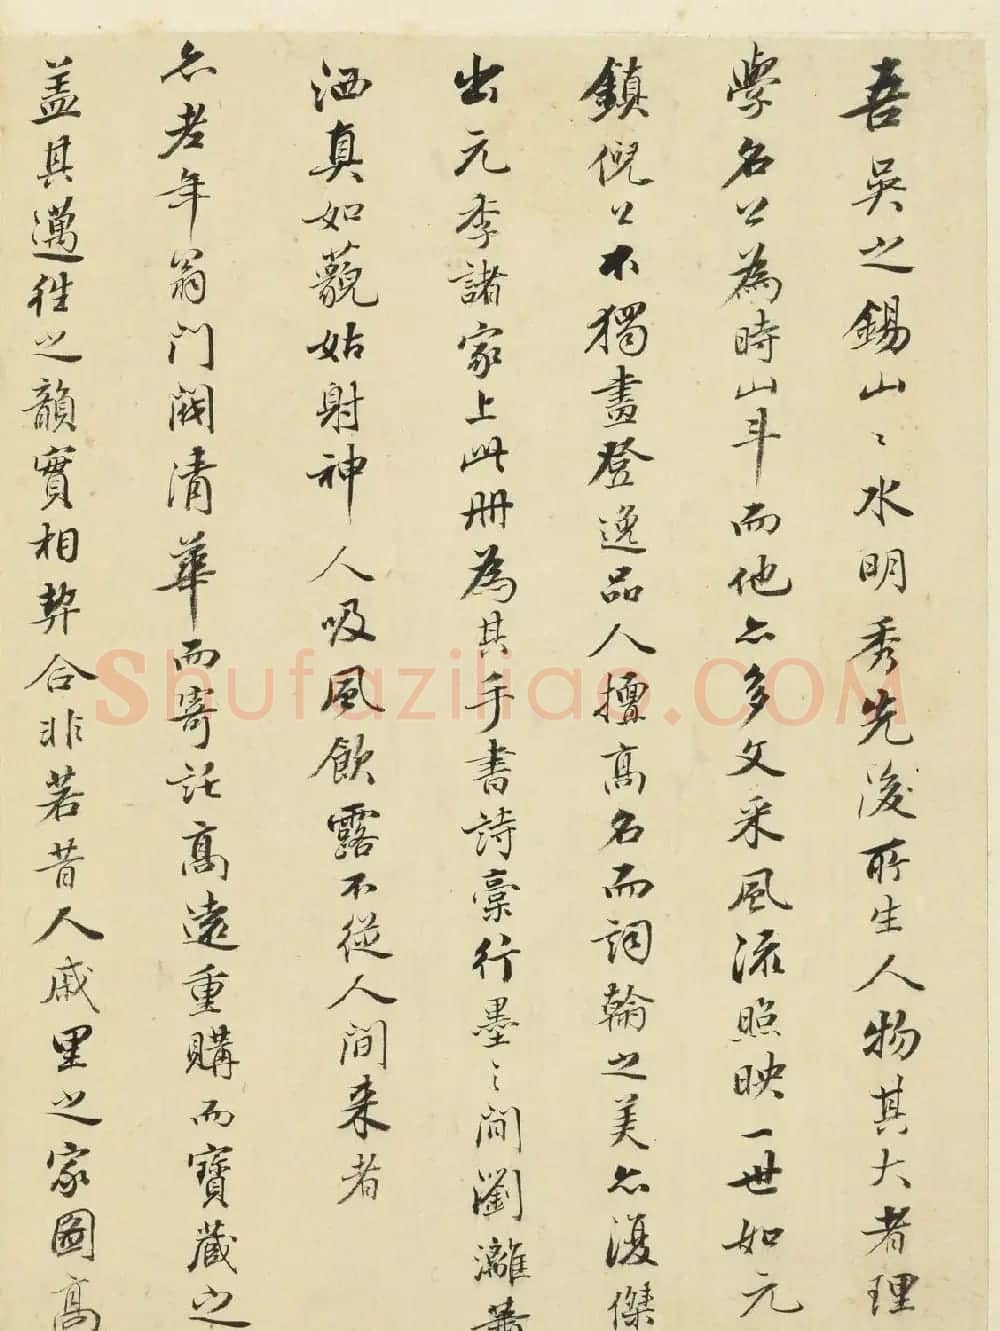 吾吳之錫山〻水明秀先後所生人物其大者理
學名公為時山斗而他亦多文采風流照映一世如元
鎮倪公不獨畫登逸品人擅高名而詞翰之美亦復傑
出元季諸家上此冊為其手書詩稾行墨〻間瀏灕蕭
洒真如藐姑射神人吸風飲露不從人間来者
亦老年翁門閥清華而寄託高遠重購而寶藏之
盖其邁往之韻實相契合非若昔人戚里之家圖高
Shufaziliao.COM